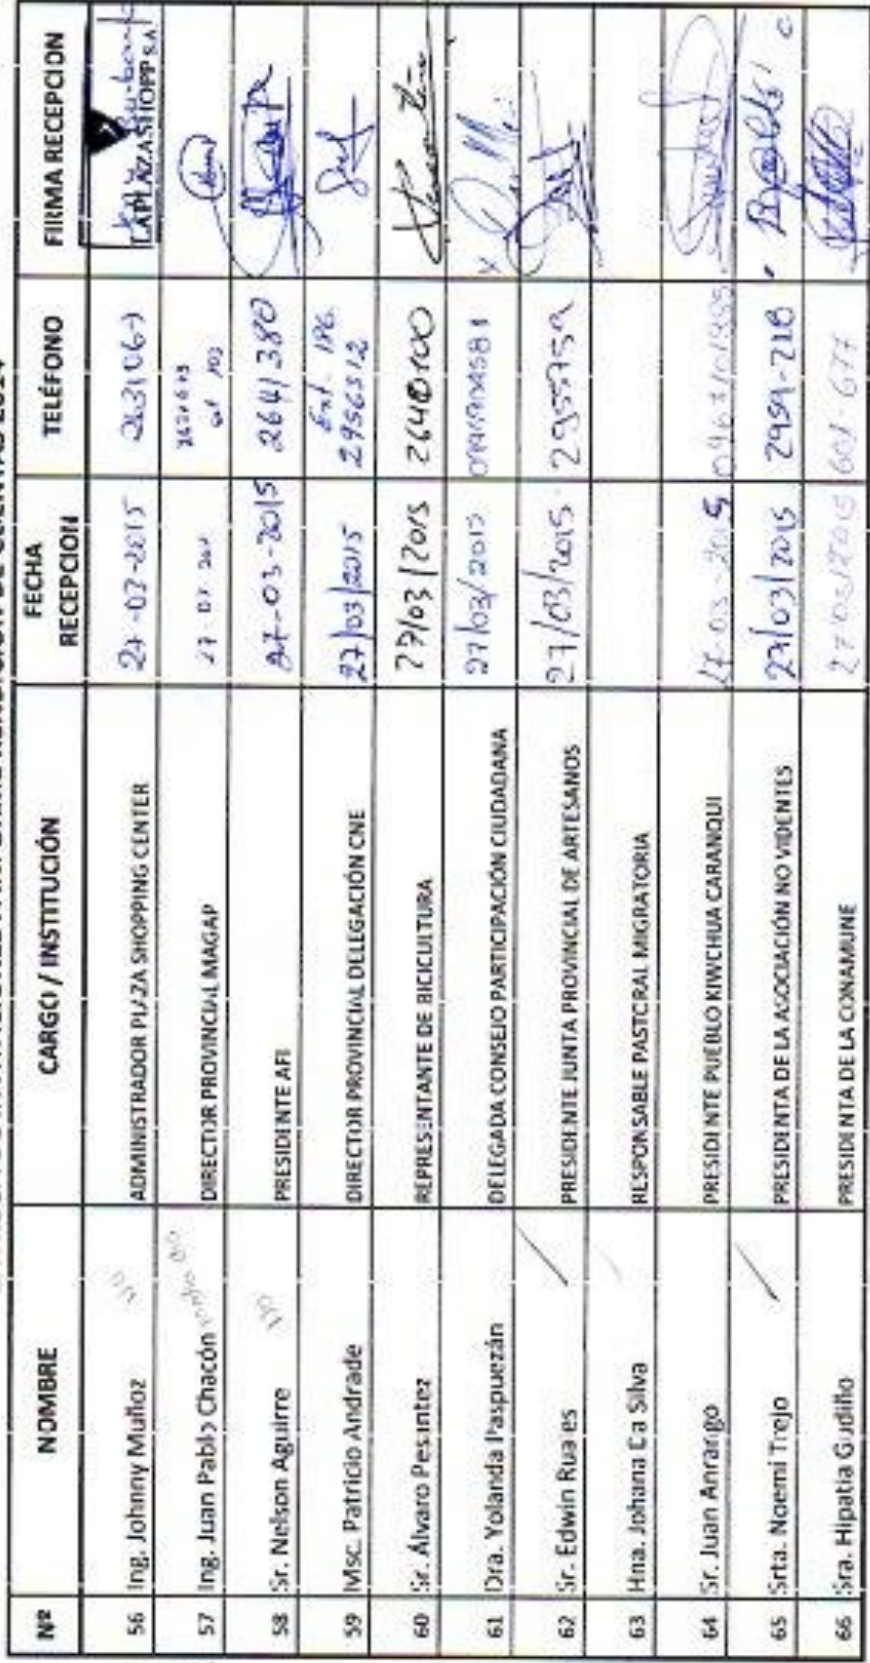 Nº NOMBRE CARGO / INSTITUCIÓN FECHA RECEPCION TELÉFONO FIRMA RECEPCION
56 Ing. Johnny Muñoz NO ADMINISTRADOR PLAZA SHOPPING CENTER 27-03-2015 2631069 LAPLAZASHOPP S.A
57 Ing. Juan Pablo Chacón DIRECTOR PROVINCIAL MAGAP
58 Sr. Nelson Aguirre NO PRESIDENTE AFI 27-03-2015 2641380
59 Msc. Patricio Andrade DIRECTOR PROVINCIAL DELEGACIÓN CNE 27/03/2015 2956312 Ext. 186
60 Sr. Álvaro Pesantez REPRESENTANTE DE BICICULTURA 27/03/2015 2640100
61 Dra. Yolanda Paspuezán DELEGADA CONSEJO PARTICIPACIÓN CIUDADANA 27/03/2015
62 Sr. Edwin Ruales PRESIDENTE JUNTA PROVINCIAL DE ARTESANOS 27/03/2015 2955759
63 Hna. Johana Da Silva RESPONSABLE PASTORAL MIGRATORIA
64 Sr. Juan Anrango PRESIDENTE PUEBLO KIWCHUA CARANQUI 27-03-2015
65 Srta. Noemi Trejo PRESIDENTA DE LA ASOCIACIÓN NO VIDENTES 27/03/2015 2959-718
66 Sra. Hipatia Gudiño PRESIDENTA DE LA CONAMUNE 27/03/2015 601-677